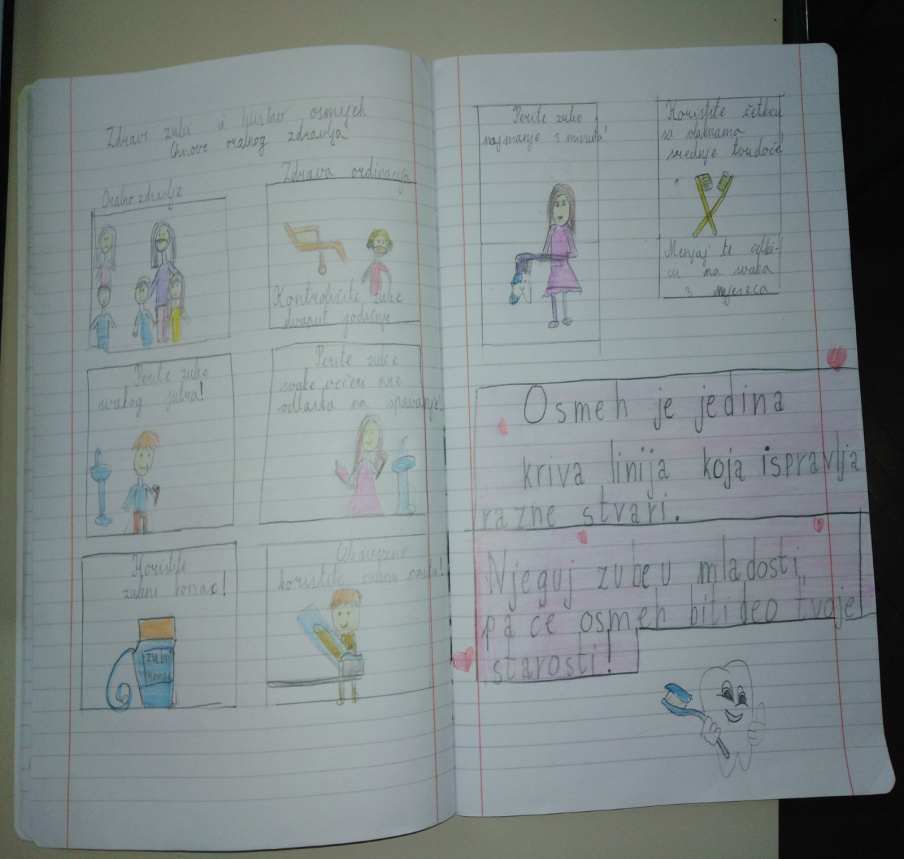 Zdravi zubi i ljustav osmijeh
Osnove oralnog zdravlja
Oralno zdravlje
Zdrava ordinacija
Kontrolišite zube
dvaput godišnje
Perite zube
svakog jutra!
Perite zube
svake večeri pre
odlaska na spavanje!
Koristite
zubni konac!
zubni
konac
Obavezno
koristite zubnu pastu!
Perite zube
najmanje 3 minuta!
Koristite četkicu
sa vlaknama
srednje tvrdoće!
Menjaj te četki-
cu na svaka
3 mjeseca
Osmeh je jedina
kriva linija koja ispravlja
razne stvari.
Njeguj zube u mladosti,
pa će osmeh biti deo tvoje
starosti!